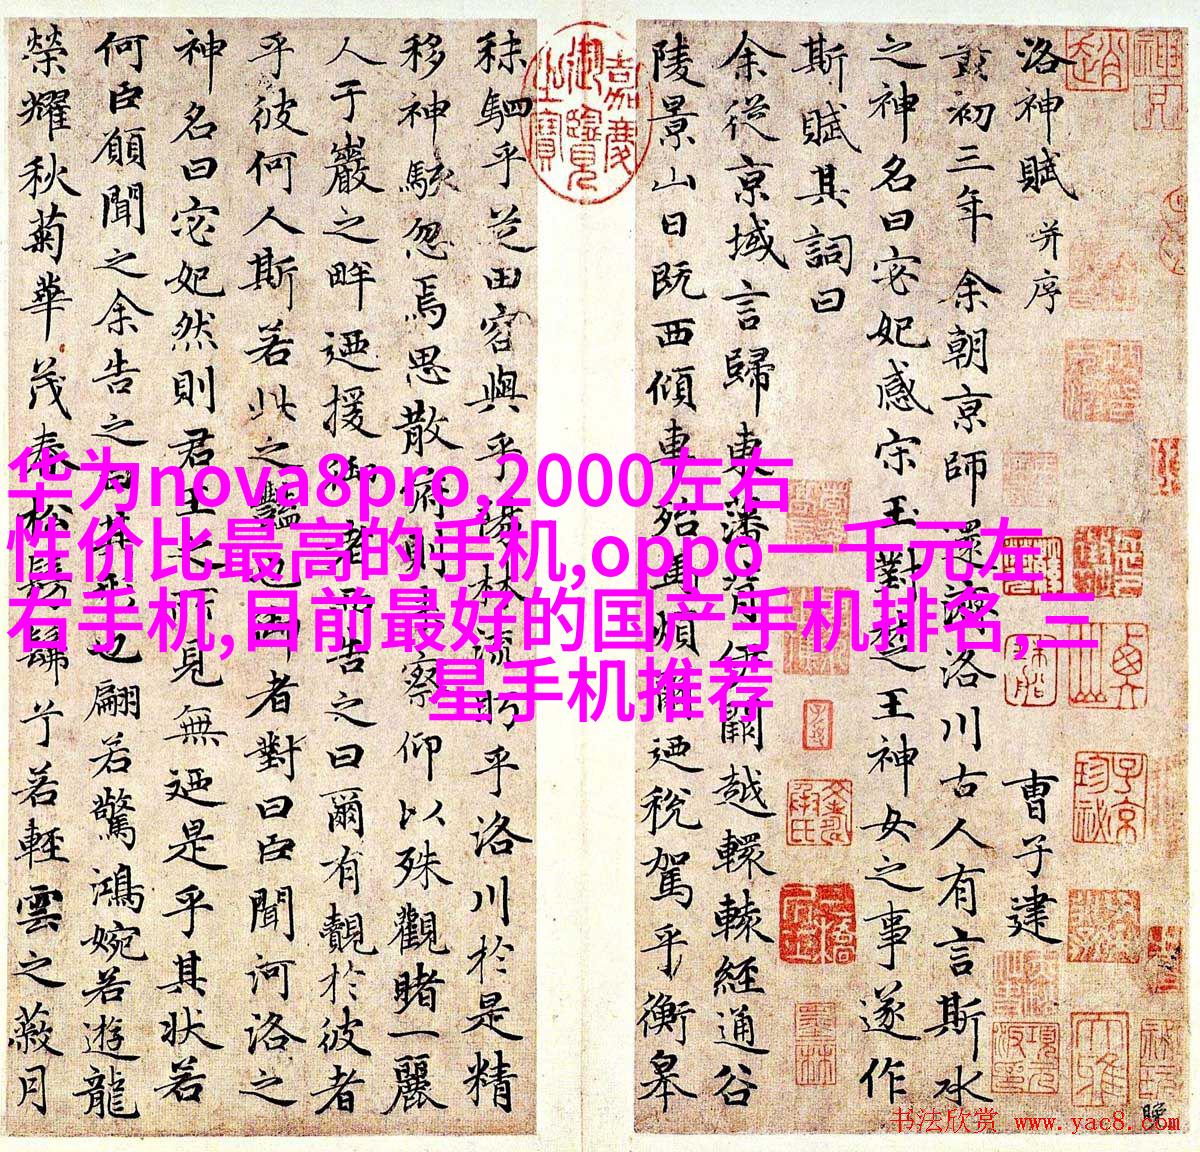 洛神賦 并序 曹子建
黄初三年余朝京師還濟洛川古人有言斯水
之神名曰宓妃感宋玉對楚王神女之事遂作
斯賦其詞曰
余從京域言歸東藩背伊闕越轘轅經通谷
陵景山日既西傾車殆馬煩爾迺稅駕乎衡皋
秣駟乎芝田容與乎陽林流眄乎洛川於是精
移神駭忽焉思散俯則未察仰以殊觀睹一麗
人于巖之畔迺援御者而告之曰爾有覿於彼者
乎彼何人斯若此之豔也御者對曰臣聞河洛之
神名曰宓妃然則君王之所見無迺是乎其状若
何臣願聞之余告之曰其形也翩若驚鴻婉若遊龍
榮耀秋菊華茂春松髣髴兮若輕雲之蔽月
嘉慶御覽之寶
华为nova8pro,2000左右
性价比最高的手机,oppo一千元左
右手机,目前最好的国产手机排名,三
星手机推荐
书法欣赏 www.yac8.com